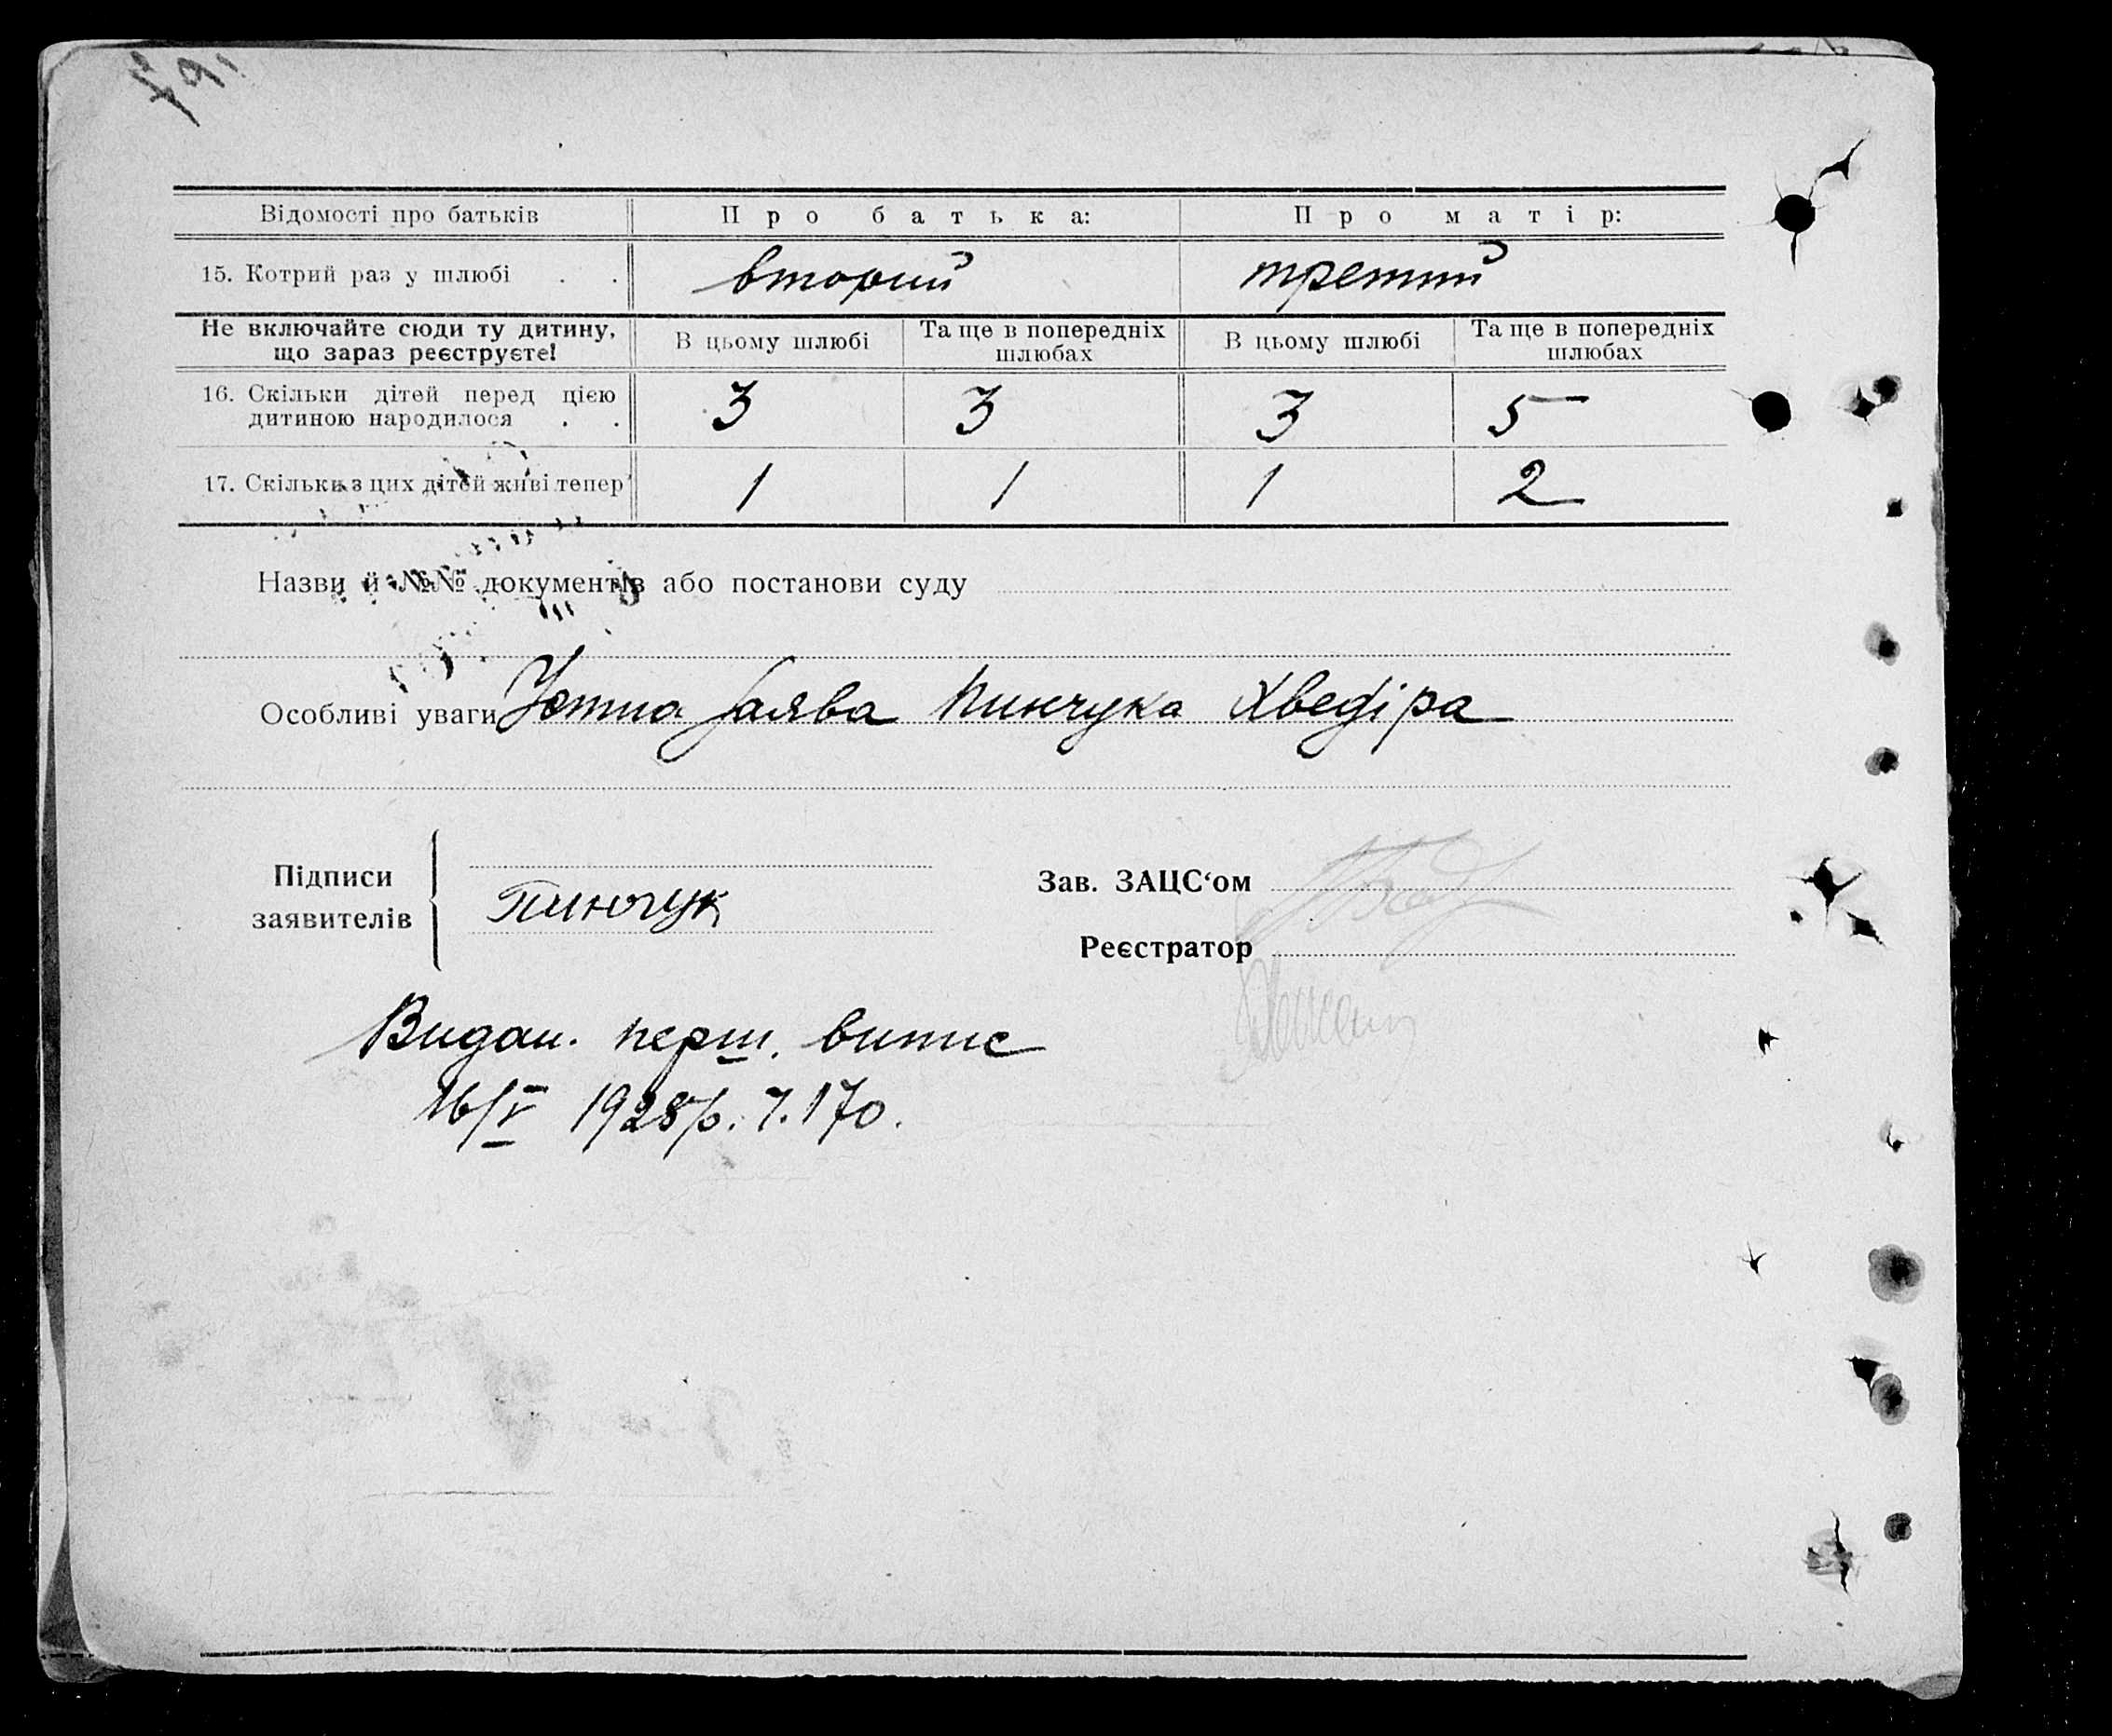 Відомості про батьків Про батька: Про матір:
15. Котрий раз у шлюбі . . вторий третий
Не включайте сюди ту дитину, що зараз реєструєте! В цьому шлюбі Та ще в попередніх шлюбах В цьому шлюбі Та ще в попередніх шлюбах
16. Скільки дітей перед цією дитиною народилося . . 3 3 3 5
17. Скільки з цих дітей живі тепер 1 1 1 2
Назви й №№ документів або постанови суду
Особливі уваги Устна заява Пинчука Хведіра
Підписи заявителів Пинчук
Зав. ЗАЦС‘ом
Реєстратор
Видан. перш. випис
16/V 1928 р. ч. 170.